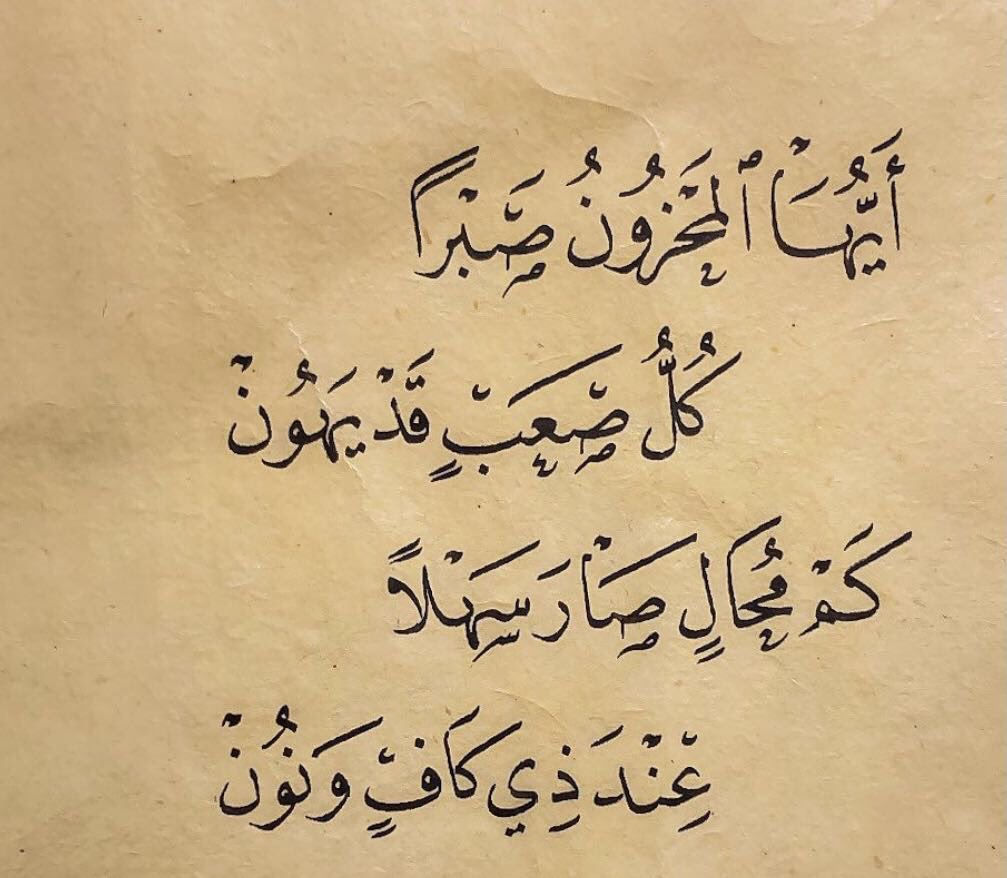 أَيُّهَا ٱلْمَحْزُونُ صَبْرًا
كُلُّ صَعْبٍ قَدْ يَهُونْ
كَمْ مُحَالٍ صَارَ سَهْلًا
عِنْدَ ذِي كَافٍ وَنُونْ